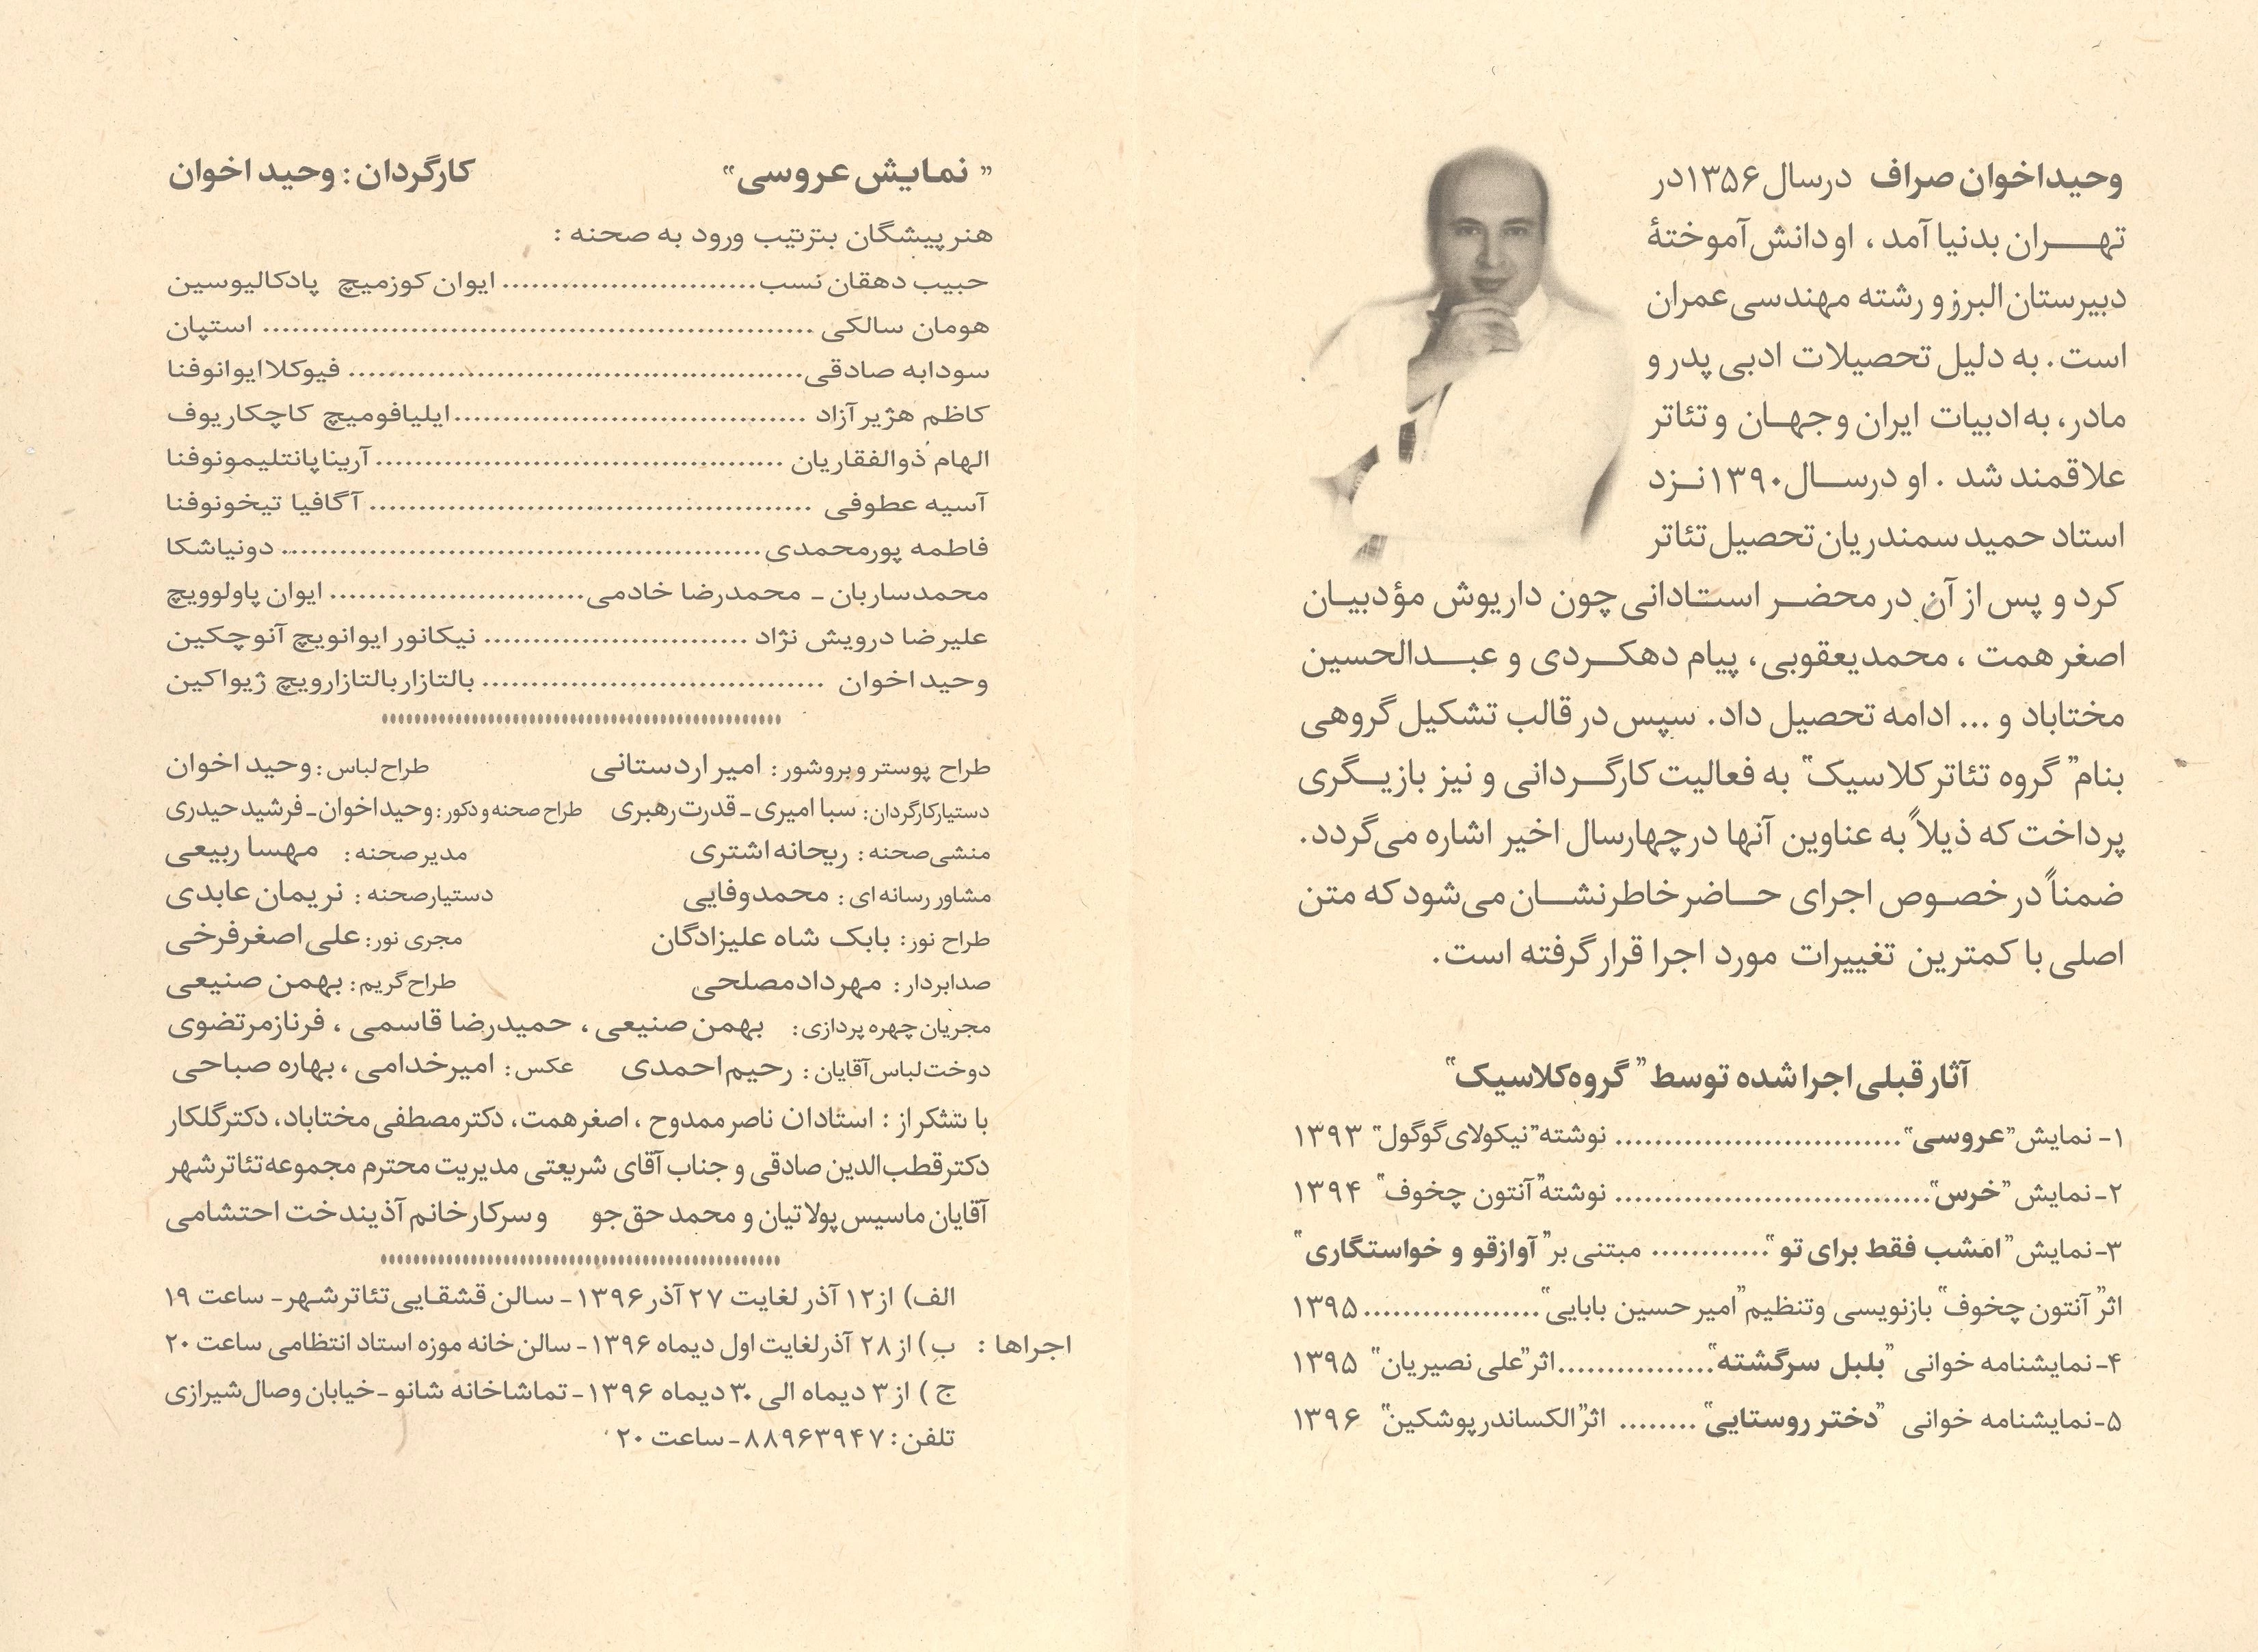 وحید اخوان صراف درسال ۱۳۵۶ در
تهران بدنیا آمد ، او دانش آموختهٔ
دبیرستان البرز و رشته مهندسی عمران
است . به دلیل تحصیلات ادبی پدر و
مادر، به ادبیات ایران و جهان و تئاتر
علاقمند شد . او درسال ۱۳۹۰ نزد
استاد حمید سمندریان تحصیل تئاتر
کرد و پس از آن در محضر استادانی چون داریوش مؤدبیان
اصغر همت ، محمد یعقوبی، پیام دهکردی و عبدالحسین
مختاباد و ... ادامه تحصیل داد. سپس در قالب تشکیل گروهی
بنام "گروه تئاتر کلاسیک" به فعالیت کارگردانی و نیز بازیگری
پرداخت که ذیلاً به عناوین آنها درچهارسال اخیر اشاره می‌گردد.
ضمناً در خصوص اجرای حاضر خاطرنشان می‌شود که متن
اصلی با کمترین تغییرات مورد اجرا قرار گرفته است.
آثار قبلی اجرا شده توسط "گروه کلاسیک"
۱- نمایش "عروسی"............................ نوشته "نیکولای گوگول" ۱۳۹۳
۲- نمایش "خرس"............................... نوشته "آنتون چخوف" ۱۳۹۴
۳- نمایش "امشب فقط برای تو"............ مبتنی بر "آوازقو و خواستگاری"
اثر "آنتون چخوف" بازنویسی وتنظیم "امیر حسین بابایی".................. ۱۳۹۵
۴- نمایشنامه خوانی "بلبل سرگشته"................اثر "علی نصیریان" ۱۳۹۵
۵- نمایشنامه خوانی "دختر روستایی"........ اثر "الکساندر پوشکین" ۱۳۹۶
"نمایش عروسی" کارگردان : وحید اخوان
هنر پیشگان بترتیب ورود به صحنه :
حبیب دهقان نسب.......................... ایوان کوزمیچ پادکالیوسین
هومان سالکی ........................................................ استپان
سودابه صادقی.............................................. فیوکلا ایوانوفنا
کاظم هژیر آزاد ....................................ایلیافومیچ کاچکاریوف
الهام ذوالفقاریان .......................................... آرینا پانتلیمونوفنا
آسیه عطوفی ............................................. آگافیا تیخونوفنا
فاطمه پورمحمدی................................................. دونیاشکا
محمد ساربان - محمدرضا خادمی.......................... ایوان پاولوویچ
علیرضا درویش نژاد ........................... نیکانور ایوانویچ آنوچکین
وحید اخوان ................................... بالتازار بالتازارویچ ژیواکین
طراح پوستر و بروشور : امیر اردستانی طراح لباس : وحید اخوان
دستیار کارگردان : سبا امیری - قدرت رهبری طراح صحنه و دکور : وحید اخوان - فرشید حیدری
منشی صحنه : ریحانه اشتری مدیر صحنه : مهسا ربیعی
مشاور رسانه ای : محمد وفایی دستیار صحنه : نریمان عابدی
طراح نور : بابک شاه علیزادگان مجری نور : علی اصغر فرخی
صدابردار : مهرداد مصلحی طراح گریم : بهمن صنیعی
مجریان چهره پردازی : بهمن صنیعی ، حمیدرضا قاسمی ، فرناز مرتضوی
دوخت لباس آقایان : رحیم احمدی عکس : امیر خدامی ، بهاره صباحی
با تشکر از : استادان ناصر ممدوح ، اصغر همت، دکتر مصطفی مختاباد، دکتر گلکار
دکتر قطب الدین صادقی و جناب آقای شریعتی مدیریت محترم مجموعه تئاتر شهر
آقایان ماسیس پولاتیان و محمد حق جو و سرکار خانم آذیندخت احتشامی
الف) از ۱۲ آذر لغایت ۲۷ آذر ۱۳۹۶ - سالن قشقایی تئاتر شهر - ساعت ۱۹
اجراها : ب) از ۲۸ آذر لغایت اول دیماه ۱۳۹۶ - سالن خانه موزه استاد انتظامی ساعت ۲۰
ج ) از ۳ دیماه الی ۳۰ دیماه ۱۳۹۶ - تماشاخانه شانو - خیابان وصال شیرازی
تلفن : ۸۸۹۶۳۹۴۷ - ساعت ۲۰